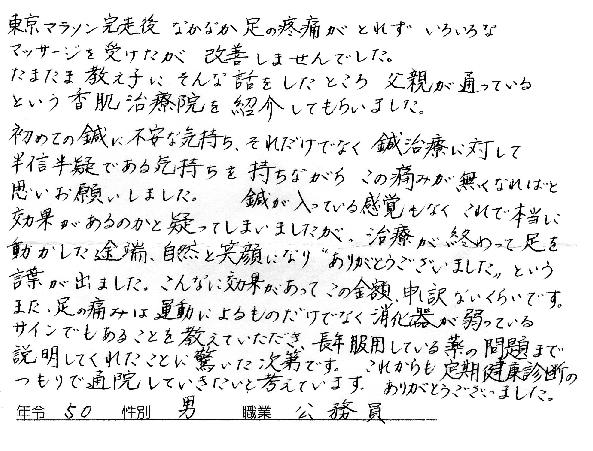 東京マラソン完走後 なかなか足の疼痛がとれず いろいろな
マッサージを受けたが 改善しませんでした。
たまたま教え子にそんな話をしたところ 父親が通っている
という香肌治療院を紹介してもらいました。
初めての鍼に不安な気持ち、それだけでなく 鍼治療に対して
半信半疑である気持ちを持ちながら この痛みが無くなればと
思いお願いしました。 鍼が入っている感覚もなく これで本当に
効果があるのかと疑ってしまいましたが、治療が終わって足を
動かした途端、自然と笑顔になり"ありがとうございました"という
言葉が出ました。こんなに効果があってこの金額、申し訳ないくらいです。
また、足の痛みは運動によるものだけでなく消化器が弱っている
サインでもあることを教えていただき、長年服用している薬の問題まで
説明してくれたことに驚いた次第です。 これからも定期健康診断の
つもりで通院していきたいと考えています。 ありがとうございました。
年令 50 性別 男 職業 公務員